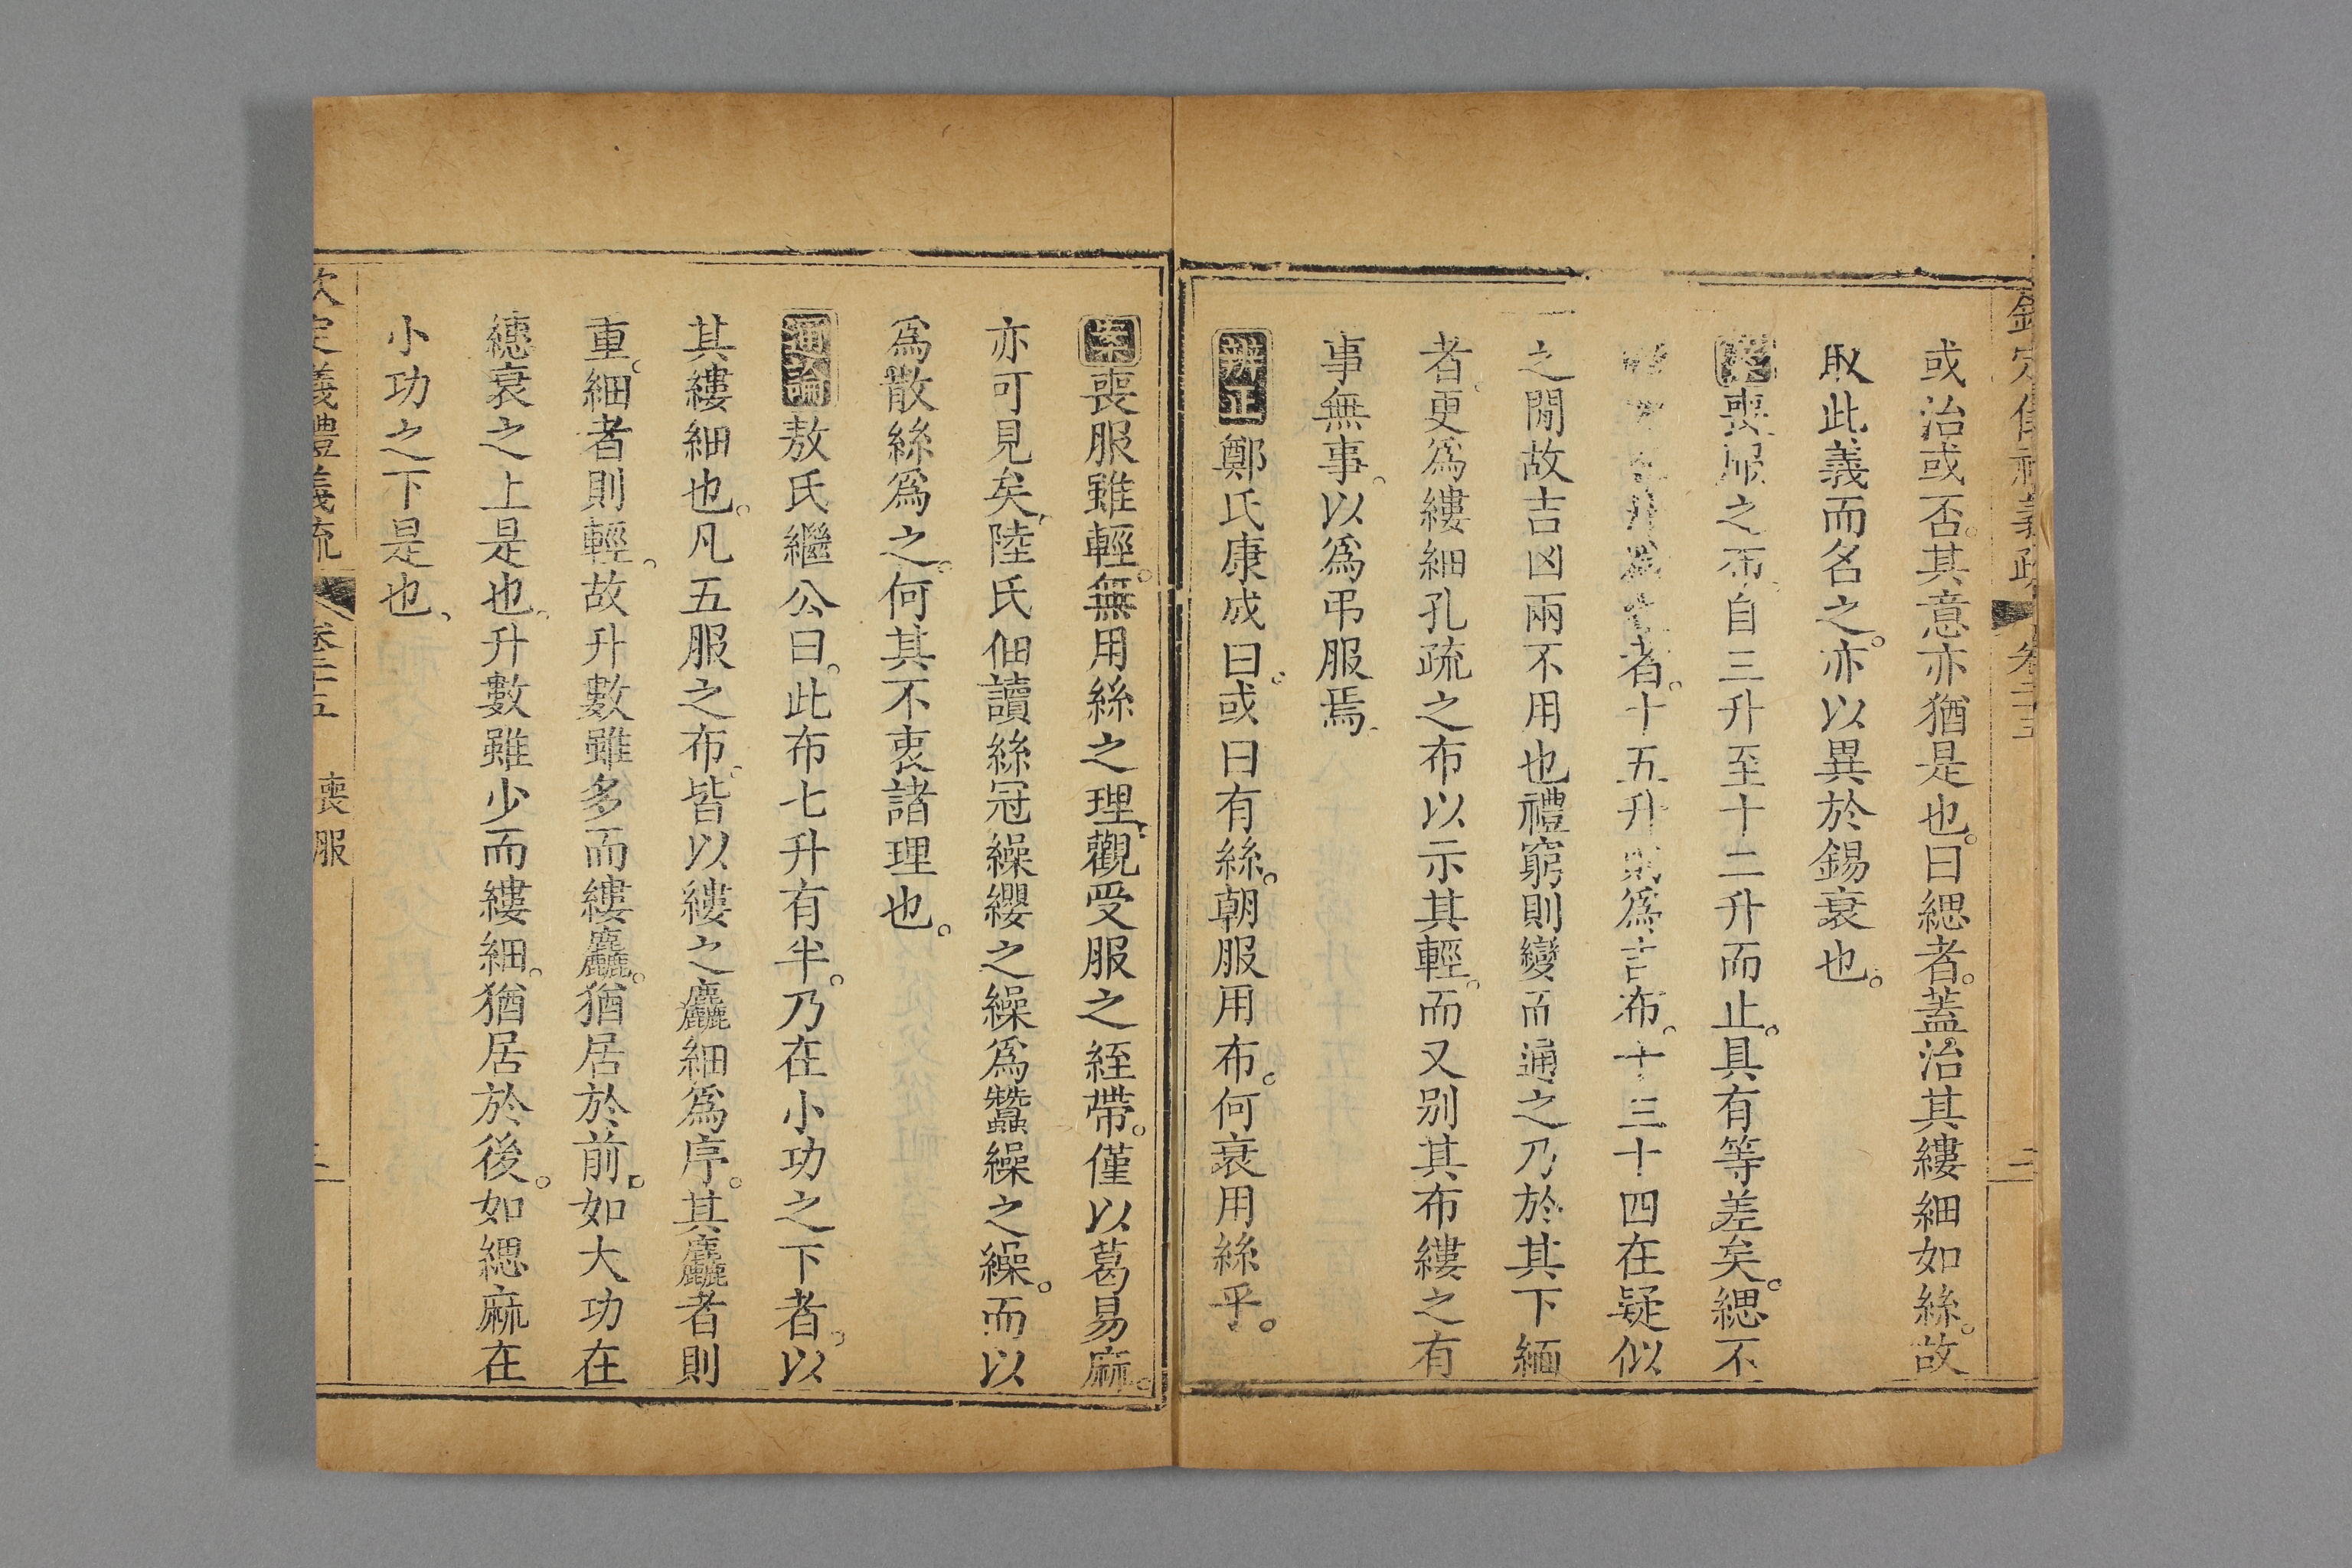 或治或否。其意亦猶是也。曰緦者。蓋治其縷細如絲。故
取此義而名之。亦以異於錫衰也。
喪服之布。自三升至十二升而止。具有等差矣。緦不
升爲 者。十五升則爲吉布。十三十四在疑似
之閒故吉凶兩不用也禮窮則變而通之乃於其下緬
者。更爲縷細孔疏之布以示其輕。而又別其布縷之有
事無事。以爲弔服焉。
辨正鄭氏康成曰。或曰有絲。朝服用布。何衰用絲乎。
案喪服雖輕。無用絲之理、觀受服之絰帶。僅以葛易麻。
亦可見矣、陸氏佃讀絲冠繰纓之繰爲蠶繰之繰。而以
爲散絲爲之。何其不衷諸理也。
通論敖氏繼公曰。此布七升有半。乃在小功之下者。以
其縷細也。凡五服之布。皆以縷之麤細爲序。其麤者則
重。細者則輕。故升數雖多而縷麤。猶居於前。如大功在
繐衰之上是也。升數雖少而縷細。猶居於後。如緦麻在
小功之下是也、
欽定義禮義疏 卷二十五 喪服